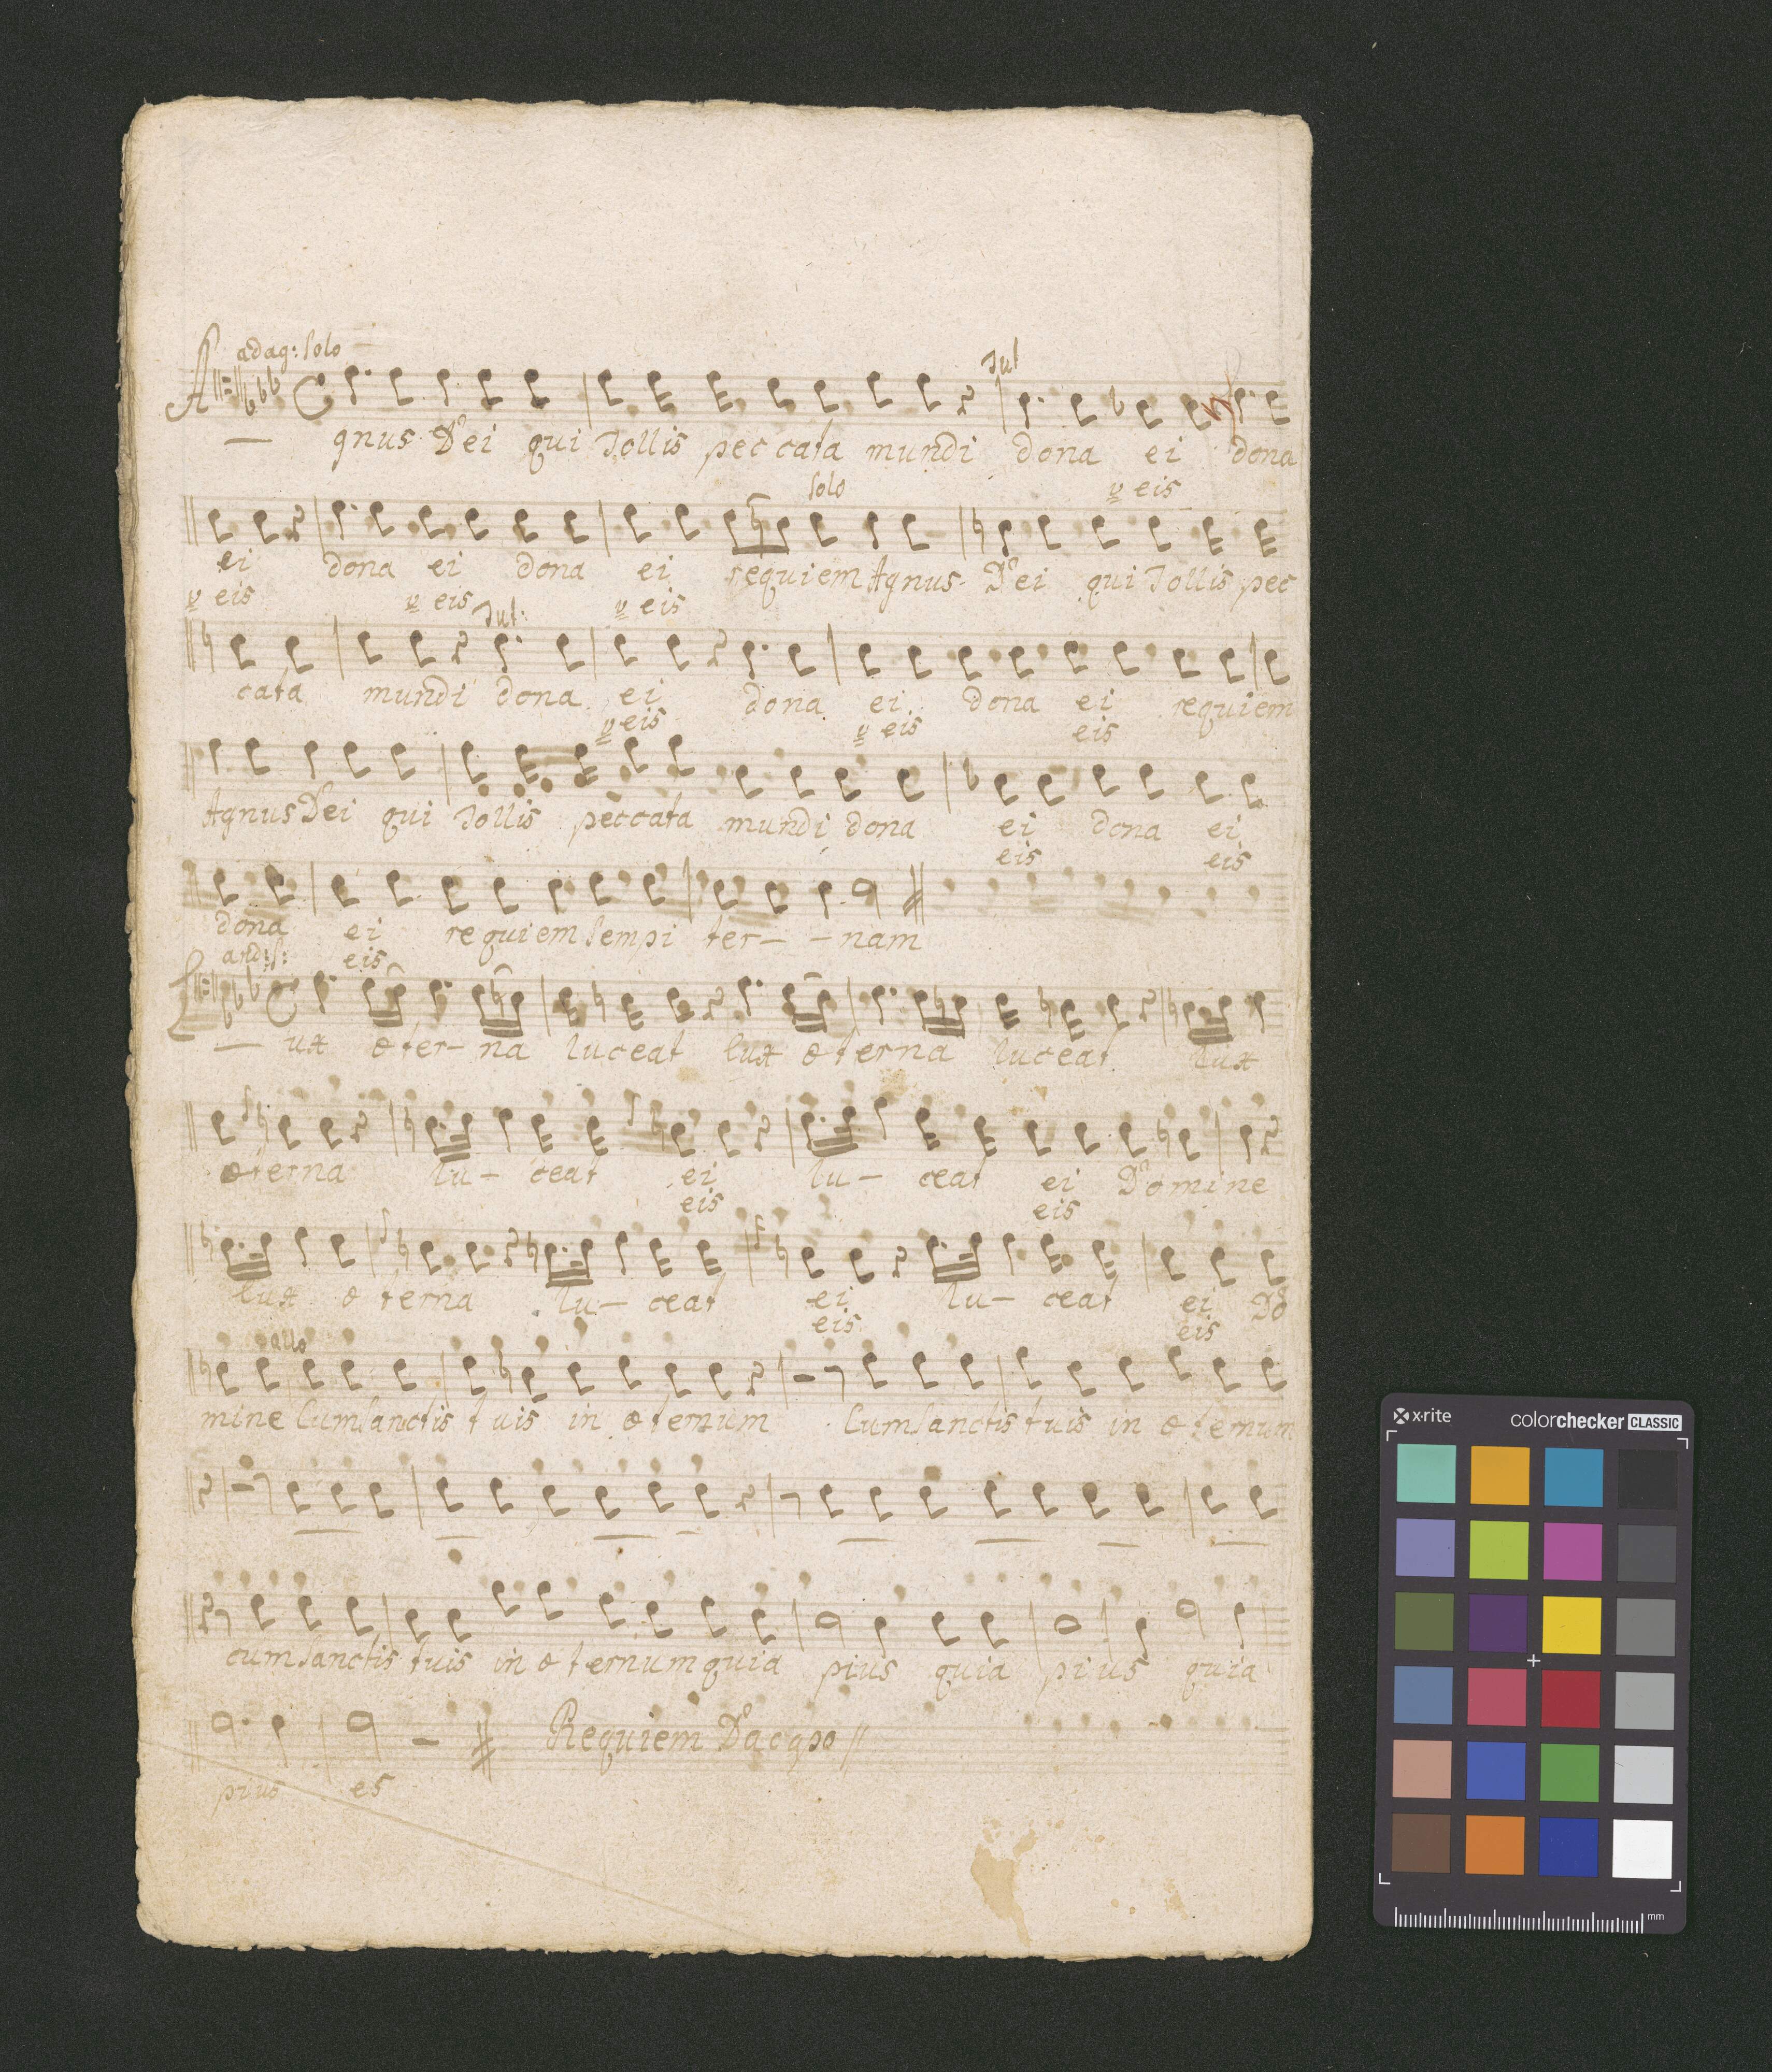 adag: Solo
Tut
A— gnus Dei qui Tollis peccata mundi dona ei dona
Solo
v eis
ei dona ei dona ei requiem Agnus Dei qui Tollis pec
v eis v eis Tut: v eis
cata mundi dona ei dona ei dona ei requiem
v eis v eis eis
Agnus Dei qui Tollis peccata mundi dona ei dona ei
eis eis
dona ei requiem Sempi ter— — nam
eis
L— ux æter— na luceat lux æterna luceat lux
æterna lu— ceat ei lu— ceat ei Domine
eis eis
lux æterna lu— ceat ei lu— ceat ei Do
eis eis
allo
mine Cum Sanctis tuis in æternum Cum Sanctis tuis in æternum
cum Sanctis tuis in æternum quia pius quia pius quia
Requiem Da capo //
pius es
x·rite colorchecker CLASSIC
mm